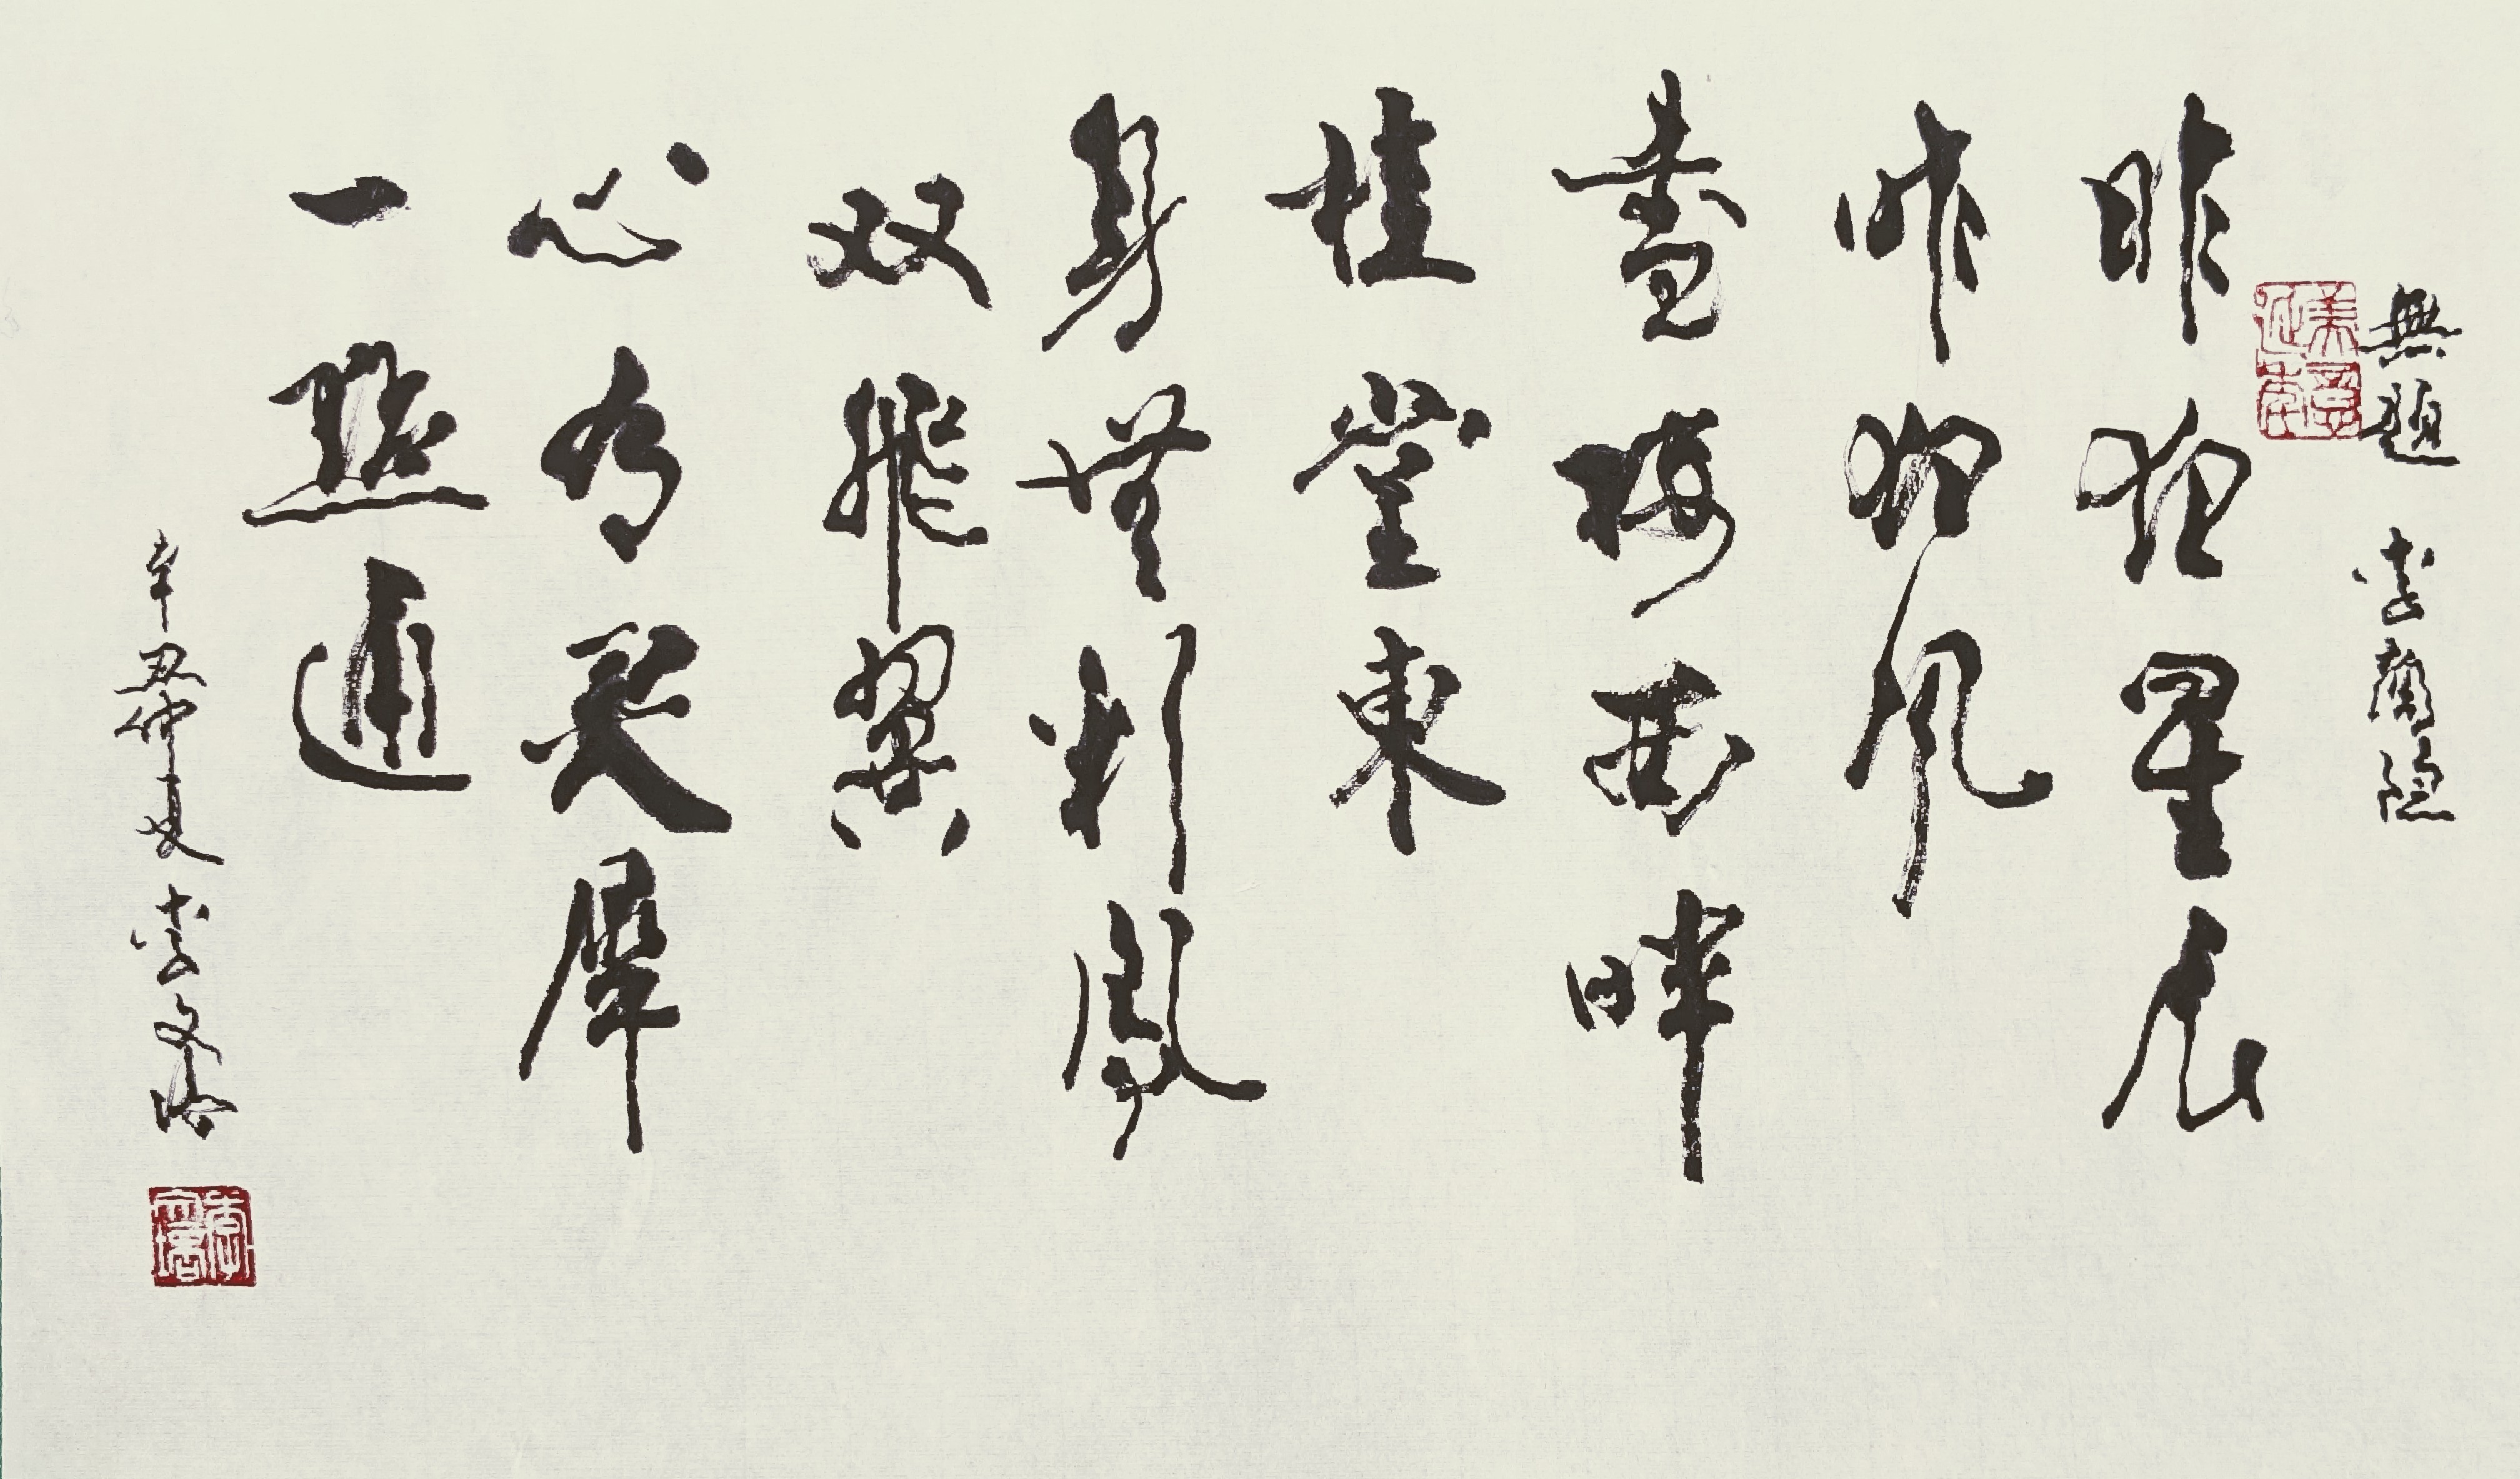 無題 李商隐
昨夜星辰
昨夜风
畫楼西畔
桂堂東
身無彩鳳
双飛翼
心有灵犀
一點通
辛丑仲夏 李文